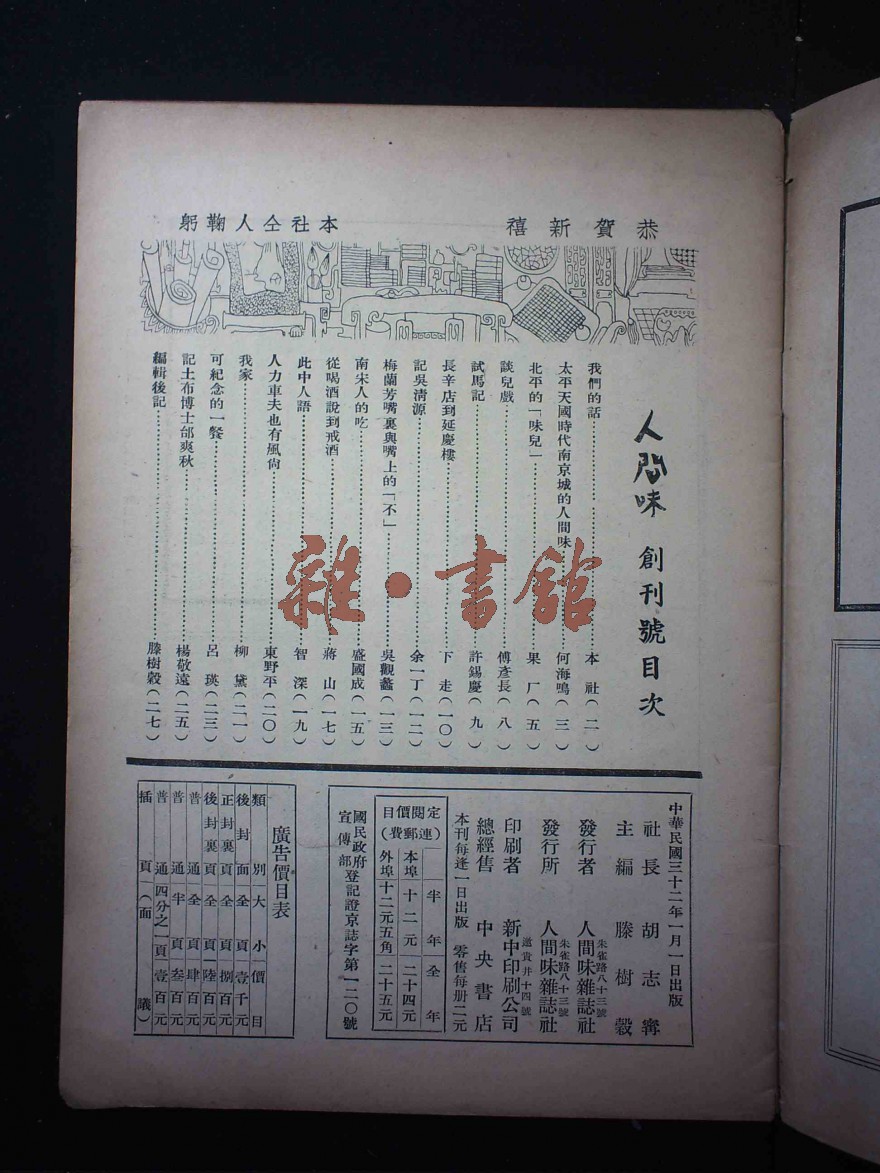 恭賀新禧
本社仝人鞠躬
人間味 創刊號目次
我們的話 本社(二)
太平天國時代南京城的人間味 何海鳴(三)
北平的「味兒」 果厂(五)
談兒戲 傅彥長(八)
試馬記 許錫慶(九)
長辛店到延慶樓 下走(一〇)
記吳清源 余一丁(一二)
梅蘭芳嘴裏與嘴上的「不」 吳觀蠡(一三)
南宋人的吃 盛國成(一五)
從喝酒說到戒酒 蔣山(一七)
此中人語 智深(一九)
人力車夫也有風尙 東野平(二〇)
我家 柳黛(二一)
可紀念的一餐 呂瑛(二三)
記土布博士邰爽秋 楊敬遠(二五)
編輯後記 滕樹穀(二七)
雜·書館
中華民國三十二年一月一日出版
社長 胡志甯
主編 滕樹穀
發行者 人間味雜誌社 朱雀路八十三號
發行所 人間味雜誌社 朱雀路八十三號
印刷者 新中印刷公司 邀貴井十四號
總經售 中央書店
本刊每逢一日出版 零售每册二元
定閱價目(連郵費)
半年 全年
本埠 十二元 二十四元
外埠 十二元五角 二十五元
國民政府宣傳部登記證京誌字第一二〇號
廣告價目表
類別 大小 價目
後封面 全頁 壹千元
正封裏頁 全頁 捌百元
後封裏頁 全頁 陸百元
普通 全頁 肆百元
普通 半頁 叁百元
普通 四分之一頁 壹百元
插頁(面議)